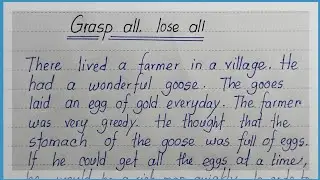 Grasp all. lose all
There lived a farmer in a village. He
had a wonderful goose. The gooes
laid an egg of gold everyday. The farmer
was very greedy. He thought that the
stomach of the goose was full of eggs.
If he could get all the eggs at a times,
he would be a rich man quickly. In order to